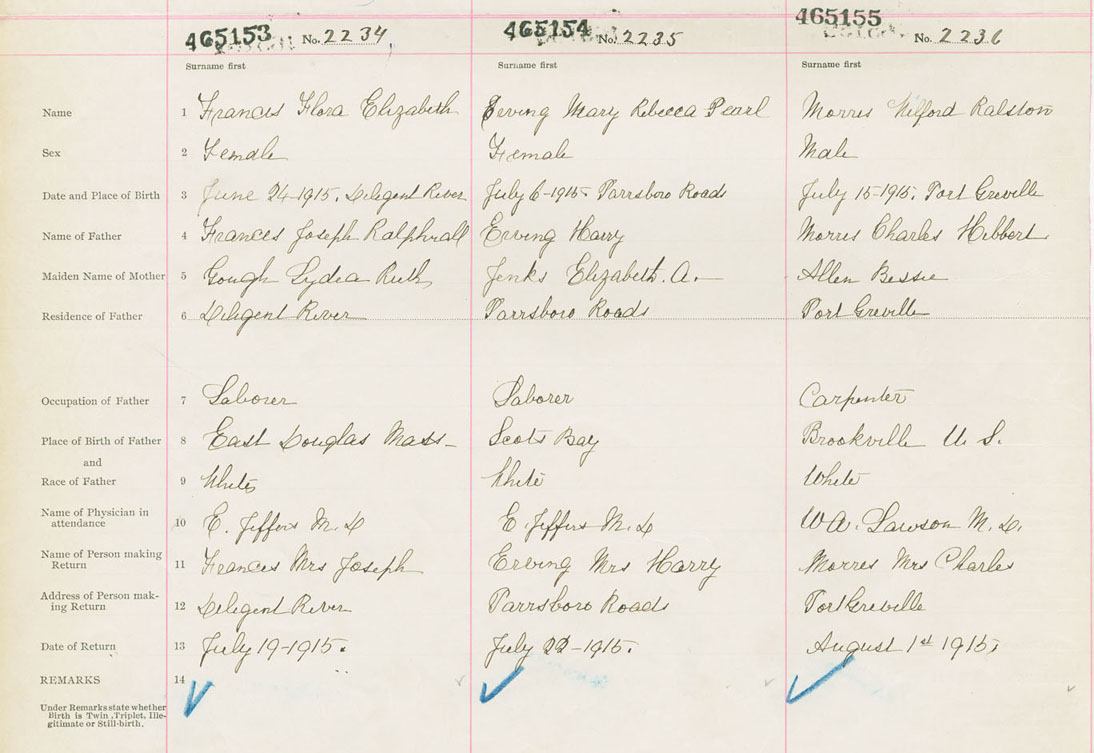 465153 No. 2234 465154 No. 2235 465155 No. 2236
Surname first Surname first Surname first
Name 1 Frances Flora Elizabeth Erving Mary Rebecca Pearl Morris Milford Ralston
Sex 2 Female Female Male
Date and Place of Birth 3 June 24-1915. Diligent River July 6-1915- Parrsboro Roads July 15-1915. Port Greville
Name of Father 4 Frances Joseph Ralphrall Erving Harry Morris Charles Hibbert
Maiden Name of Mother 5 Gough Lydia Ruth Jenks Elizabeth. A. Allen Bessie
Residence of Father 6 Diligent River Parrsboro Roads Port Greville
Occupation of Father 7 Laborer Laborer Carpenter
Place of Birth of Father 8 East Douglas Mass- Scots Bay Brookville U. S.
and
Race of Father 9 White White White
Name of Physician in
attendance 10 E. Jeffers M. D E. Jeffers M. D W A. Lawson M. D.
Name of Person making
Return 11 Frances Mrs Joseph Erving Mrs Harry Morres Mrs Charles
Address of Person mak-
ing Return 12 Diligent River Parrsboro Roads Port Greville
Date of Return 13 July 19-1915. July 22-1915. August 1st 1915.
REMARKS 14
Under Remarks state whether
Birth is Twin, Triplet, Ille-
gitimate or Still-birth.